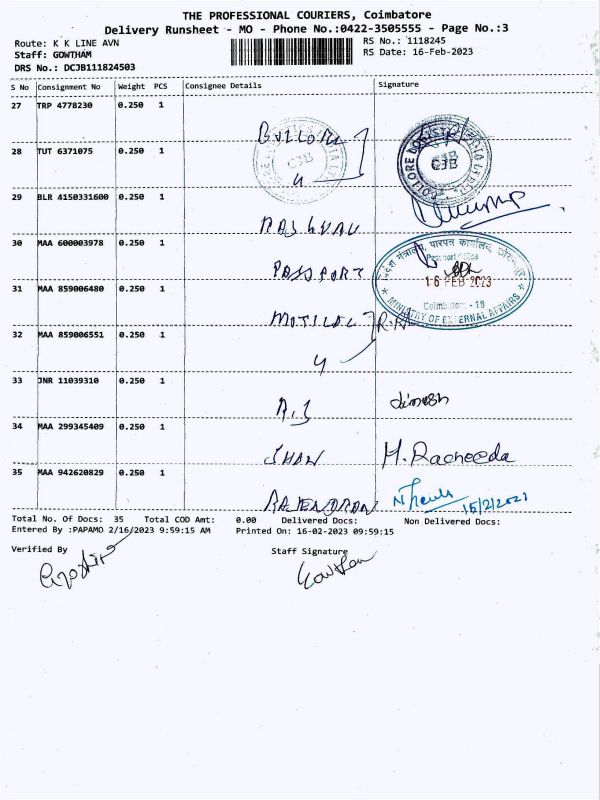 THE PROFESSIONAL COURIERS, Coimbatore
Delivery Runsheet - MO - Phone No.:0422-3505555 - Page No.:3
Route: K K LINE AVN
RS No.: 1118245
Staff: GOWTHAM
RS Date: 16-Feb-2023
DRS No.: DCJB111824503
S No Consignment No Weight PCS Consignee Details Signature
27 TRP 4778230 0.250 1
28 TUT 6371075 0.250 1
CJB
CJB
29 BLR 4150331600 0.250 1
30 MAA 600003978 0.250 1
PASSPORT
पारपत्र कार्यालय
Passport Office
16 FEB 2023
Coimbatore - 18
MINISTRY OF EXTERNAL AFFAIRS
31 MAA 859006480 0.250 1
MOTILAL
32 MAA 859006551 0.250 1
33 JNR 11039310 0.250 1
dinesh
34 MAA 299345409 0.250 1
SHAN H. Racheeda
35 MAA 942620829 0.250 1
RAJENDRAN
15/2/2023
Total No. Of Docs: 35 Total COD Amt: 0.00 Delivered Docs: Non Delivered Docs:
Entered By :PAPAMO 2/16/2023 9:59:15 AM Printed On: 16-02-2023 09:59:15
Verified By Staff Signature
Gowtham